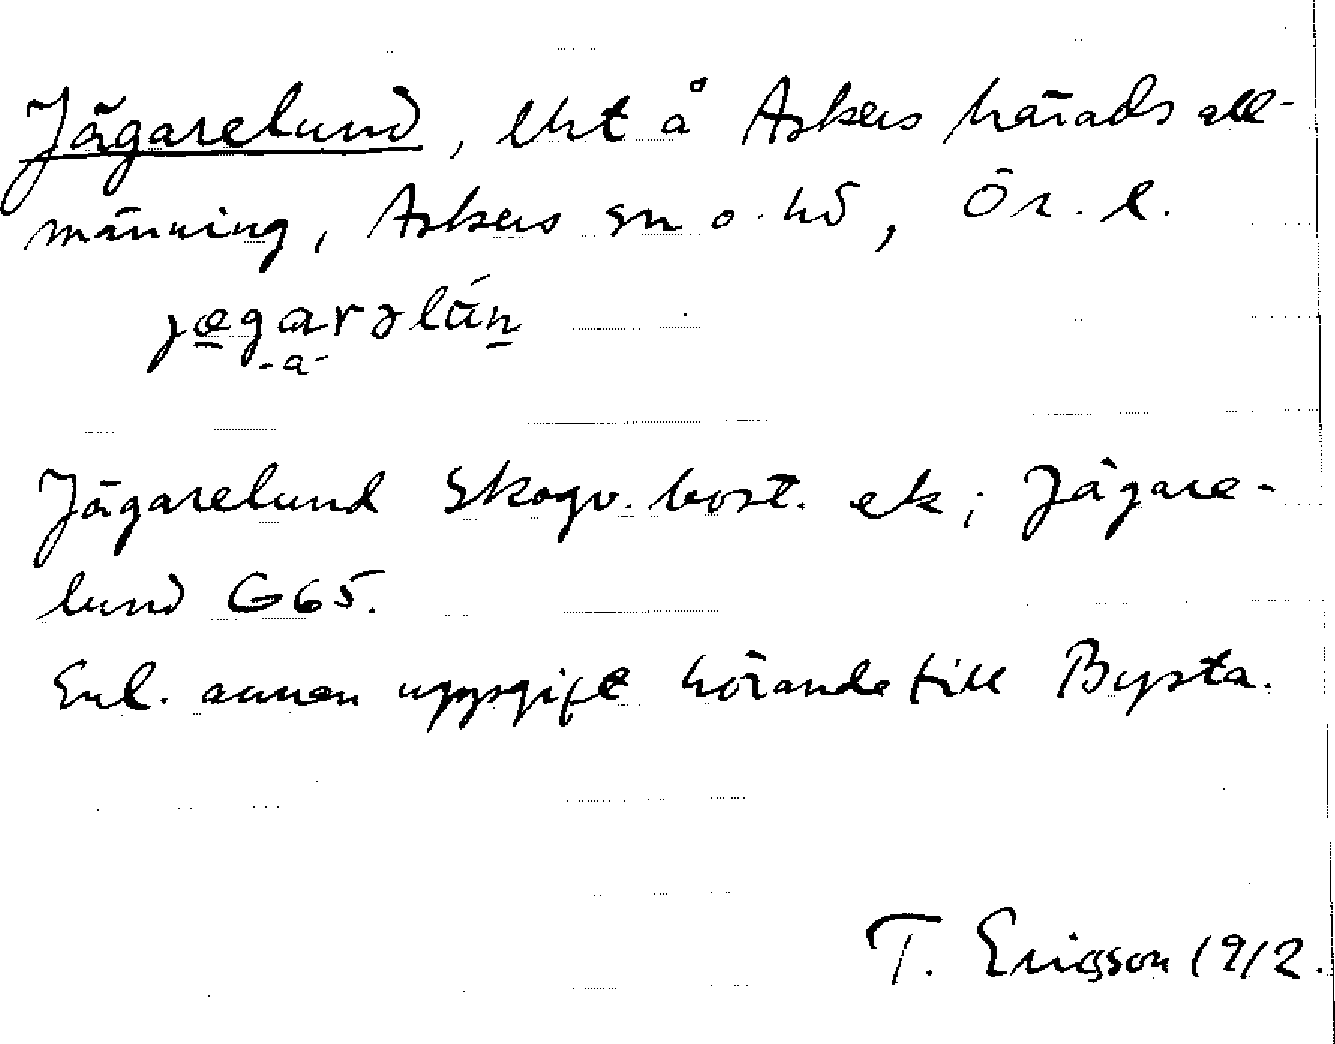 Jägarelund, lht å Askers härads all-
männing, Askers sn o. hd, Ör. l.
jægarəlún
-a-
Jägarelund Skogv. bost. ek; Jägare-
lund G65.
Enl. annan uppgift hörande till Bysta.
T. Ericsson 1912.